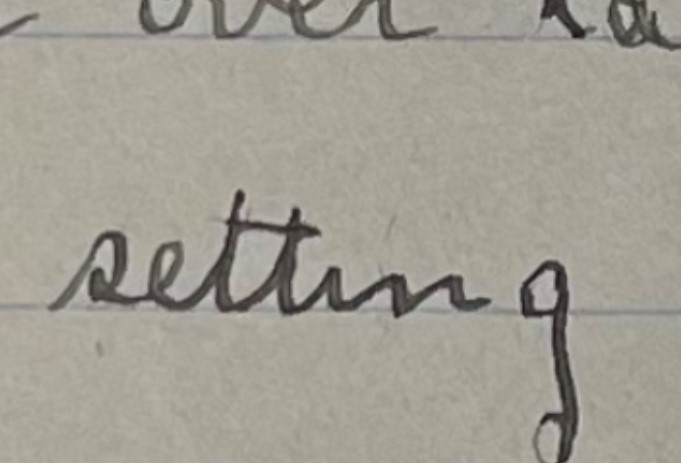 over
setting